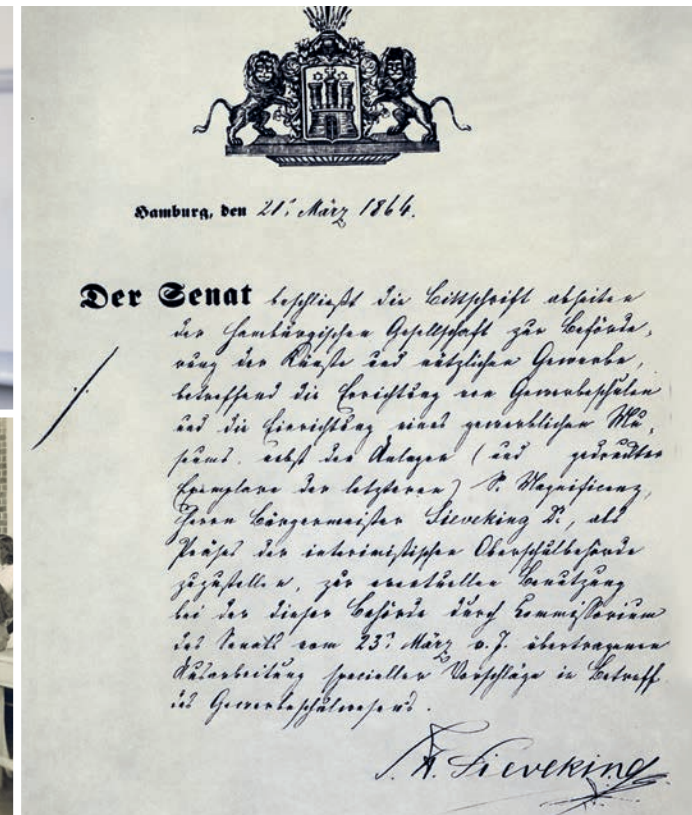 Hamburg, den 21. März 1864.
Der Senat beschließt die Bittschrift abseiten
der Hamburgischen Gesellschaft zur Beförde-
rung der Künste und nützlichen Gewerbe,
betreffend die Errichtung von Gewerbeschulen
und die Einrichtung eines gewerblichen Mu-
seums. nebst den Anlagen (und gedruckten
Exemplare der letzteren) Sr. Magnificenz,
Herrn Bürgermeister Sieveking Dr., als
Präses der interimistischen Oberschulbehörde
zuzustellen, zur eventuellen Benutzung
bei der dieser Behörde durch Commissorium
des Senats vom 23. März v. J. übertragenen
Ausarbeitung specieller Vorschläge in Betreff
des Gewerbeschulwesens.
Sieveking